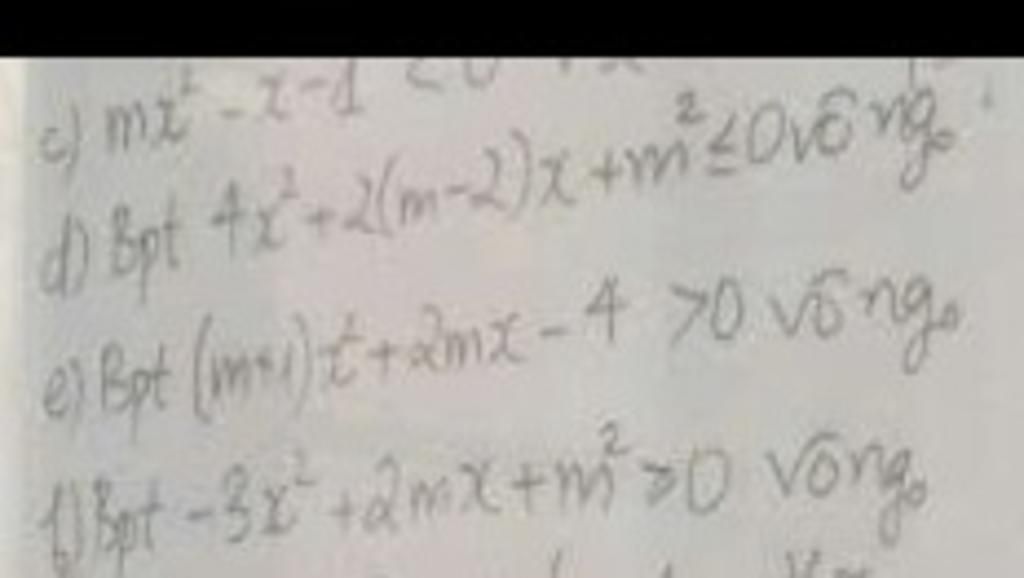 c) mx² - x - 1 < 0 ∀x
d) Bpt 4x² + 2(m-2)x + m² ≤ 0 vô ng₀
e) Bpt (m+1)x² + 2mx - 4 > 0 vô ng₀
f) Bpt -3x² + 2mx + m² > 0 vô ng₀